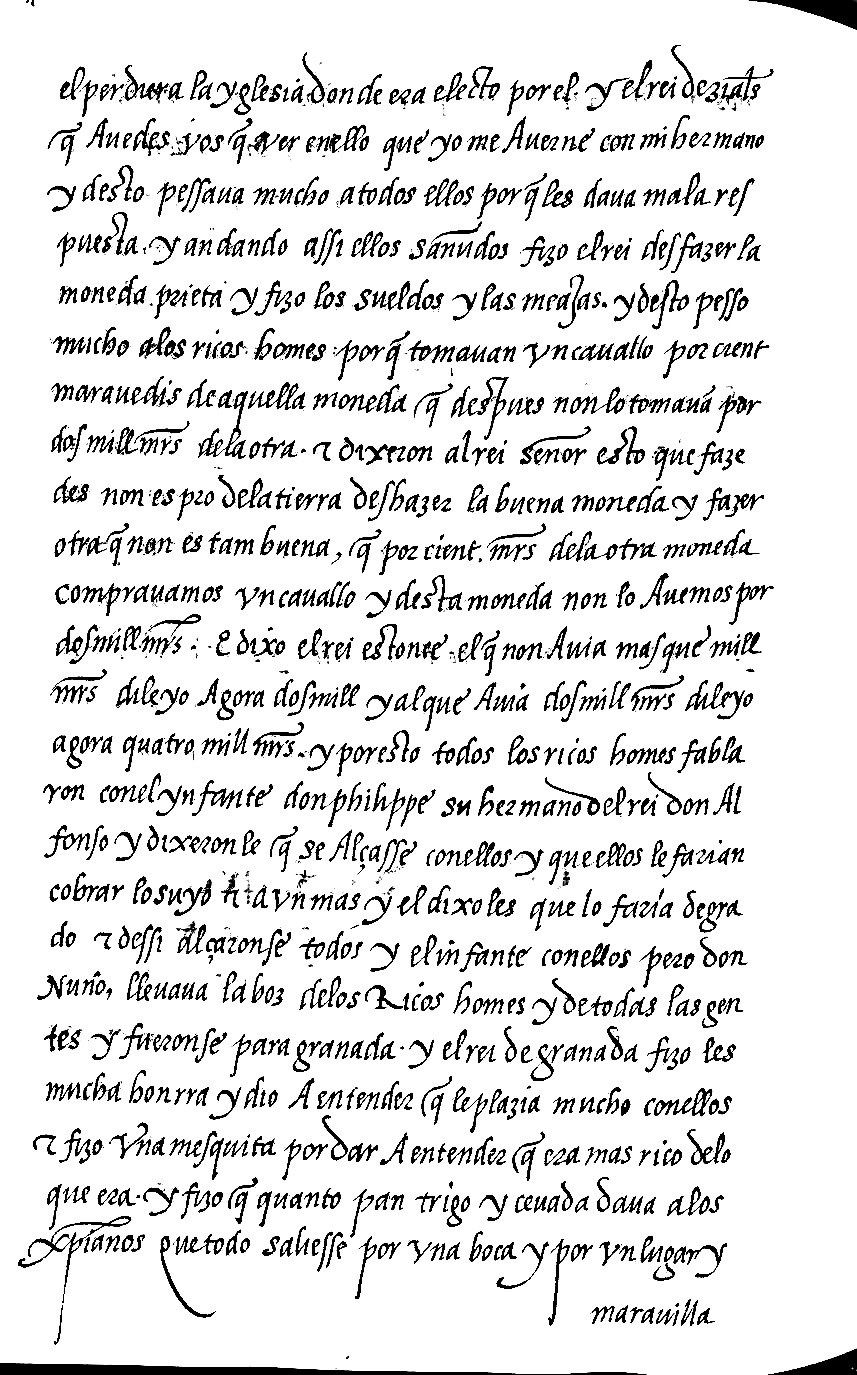 el perdiera la yglesia donde era electo por el y el rei deziales
q̃ Auedes vos q̃ ver en ello que yo me Auerne con mi hermano
y desto pessaua mucho a todos ellos por q̃ les daua mala res
puesta. y andando assi ellos sañudos fizo el rei desfazer la
moneda prieta y fizo los sueldos y las meajas. y desto pesso
mucho a los ricos homes por q̃ tomauan vn cauallo por cient
marauedis de aquella moneda q̃ despues non lo tomauã por
dos mill mrs de la otra. ⁊ dixeron al rei señor esto que faze
des non es pro de la tierra deshazer la buena moneda y fazer
otra q̃ non es tam buena, q̃ por cient. mrs de la otra moneda
comprauamos vn cauallo y desta moneda non lo Auemos por
dos mill mrs. E dixo el rei estonce el q̃ non Auia mas que mill
mrs dile yo Agora dos mill y al que Auia dos mill mrs dile yo
agora quatro mill mrs. y por esto todos los ricos homes fabla
ron con el ynfante don philippe su hermano del rei don Al
fonso y dixeron le q̃ se Alçasse con ellos y que ellos le farian
cobrar lo suyo ⁊ avn mas y el dixo les que lo faria de gra
do ⁊ dessi alçaronse todos y el infante con ellos pero don
Nuño, lleuaua la boz de los Ricos homes y de todas las gen
tes y fueronse para granada. y el rei de granada fizo les
mucha honrra y dio A entender q̃ le plazia mucho con ellos
⁊ fizo vna mesquita por dar A entender q̃ era mas rico de lo
que era. y fizo q̃ quanto pan trigo y ceuada daua a los
xp̃ianos que todo saliesse por vna boca y por vn lugar y
marauilla